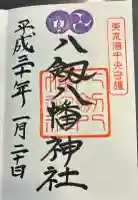 東京湾中央守護
八剱八幡神社
平成三十年一月二十日